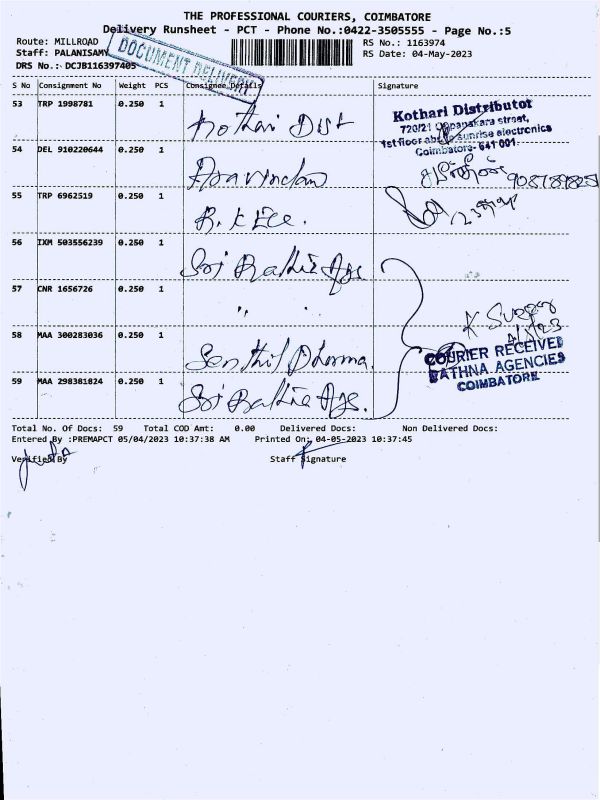 THE PROFESSIONAL COURIERS, COIMBATORE
Delivery Runsheet - PCT - Phone No.:0422-3505555 - Page No.:5
Route: MILLROAD
RS No.: 1163974
Staff: PALANISAMY
RS Date: 04-May-2023
DRS No.: DCJB116397405
DOCUMENT DELIVERY
S No Consignment No Weight PCS Consignee Details Signature
53 TRP 1998781 0.250 1 Kothari Dist
Kothari Distributor
720/21 Oppanakara street,
1st floor above sunrise electronics
Coimbatore- 641 001.
54 DEL 910220644 0.250 1 Aravindan
55 TRP 6962519 0.250 1 R. K Ece.
56 IXM 503556239 0.250 1 Sri Rathna Ags
57 CNR 1656726 0.250 1 "
58 MAA 300283036 0.250 1 Senthil Pharma.
COURIER RECEIVED
RATHNA AGENCIES
COIMBATORE
59 MAA 298381824 0.250 1 Sri Rathna Ags.
Total No. Of Docs: 59 Total COD Amt: 0.00 Delivered Docs: Non Delivered Docs:
Entered By :PREMAPCT 05/04/2023 10:37:38 AM Printed On: 04-05-2023 10:37:45
Verified By Staff Signature